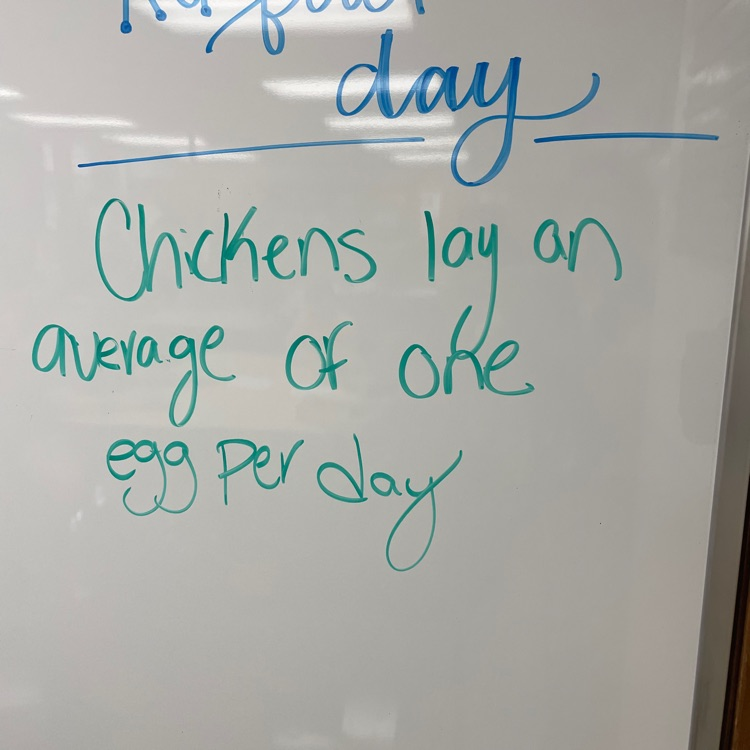 day
Chickens lay an
average of one
egg per day